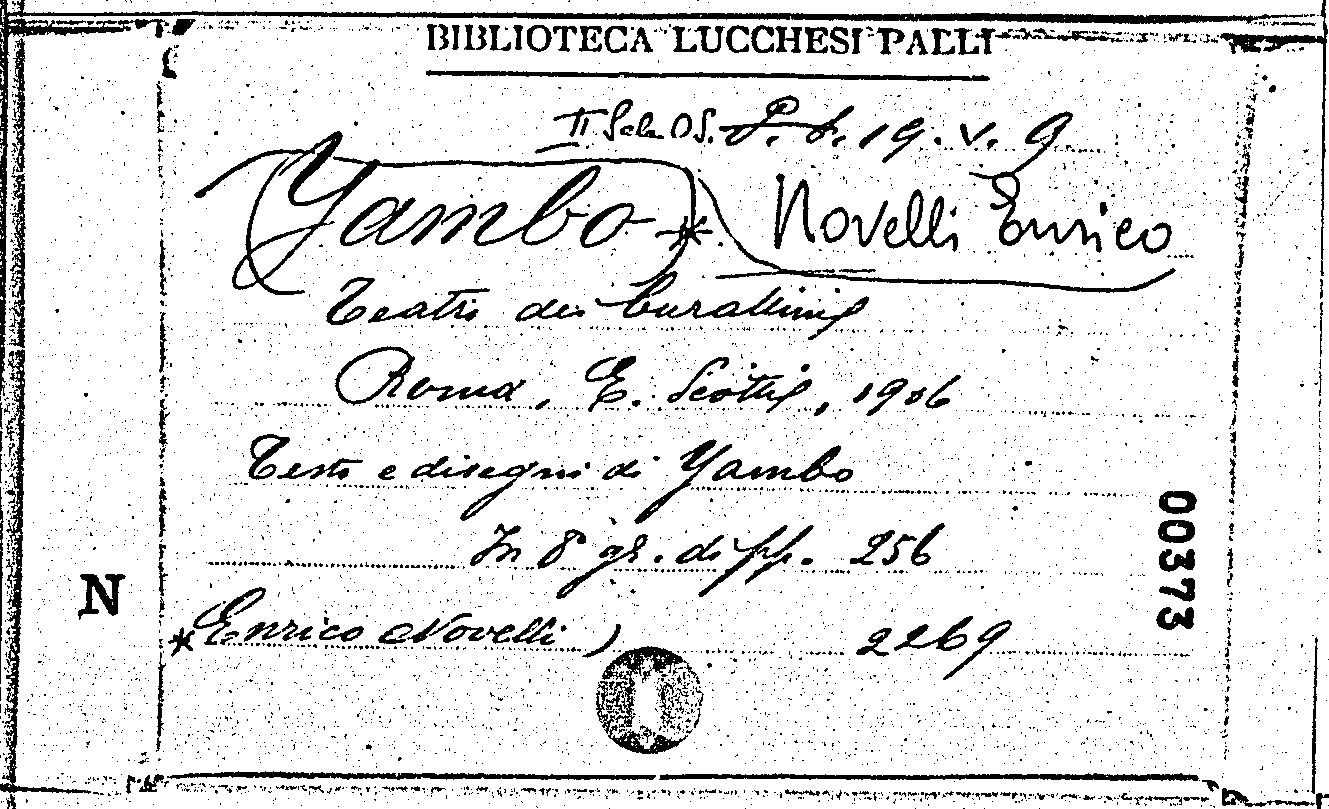 BIBLIOTECA LUCCHESI PALLI
II Sala OS. P. L. 19. V. 9
Yambo * Novelli Enrico
Teatro dei burattini
Roma, E. Scotti, 1906
Testo e disegni di Yambo
In 8° gr. di pp. 256
N
00373
* Enrico Novelli) 2269